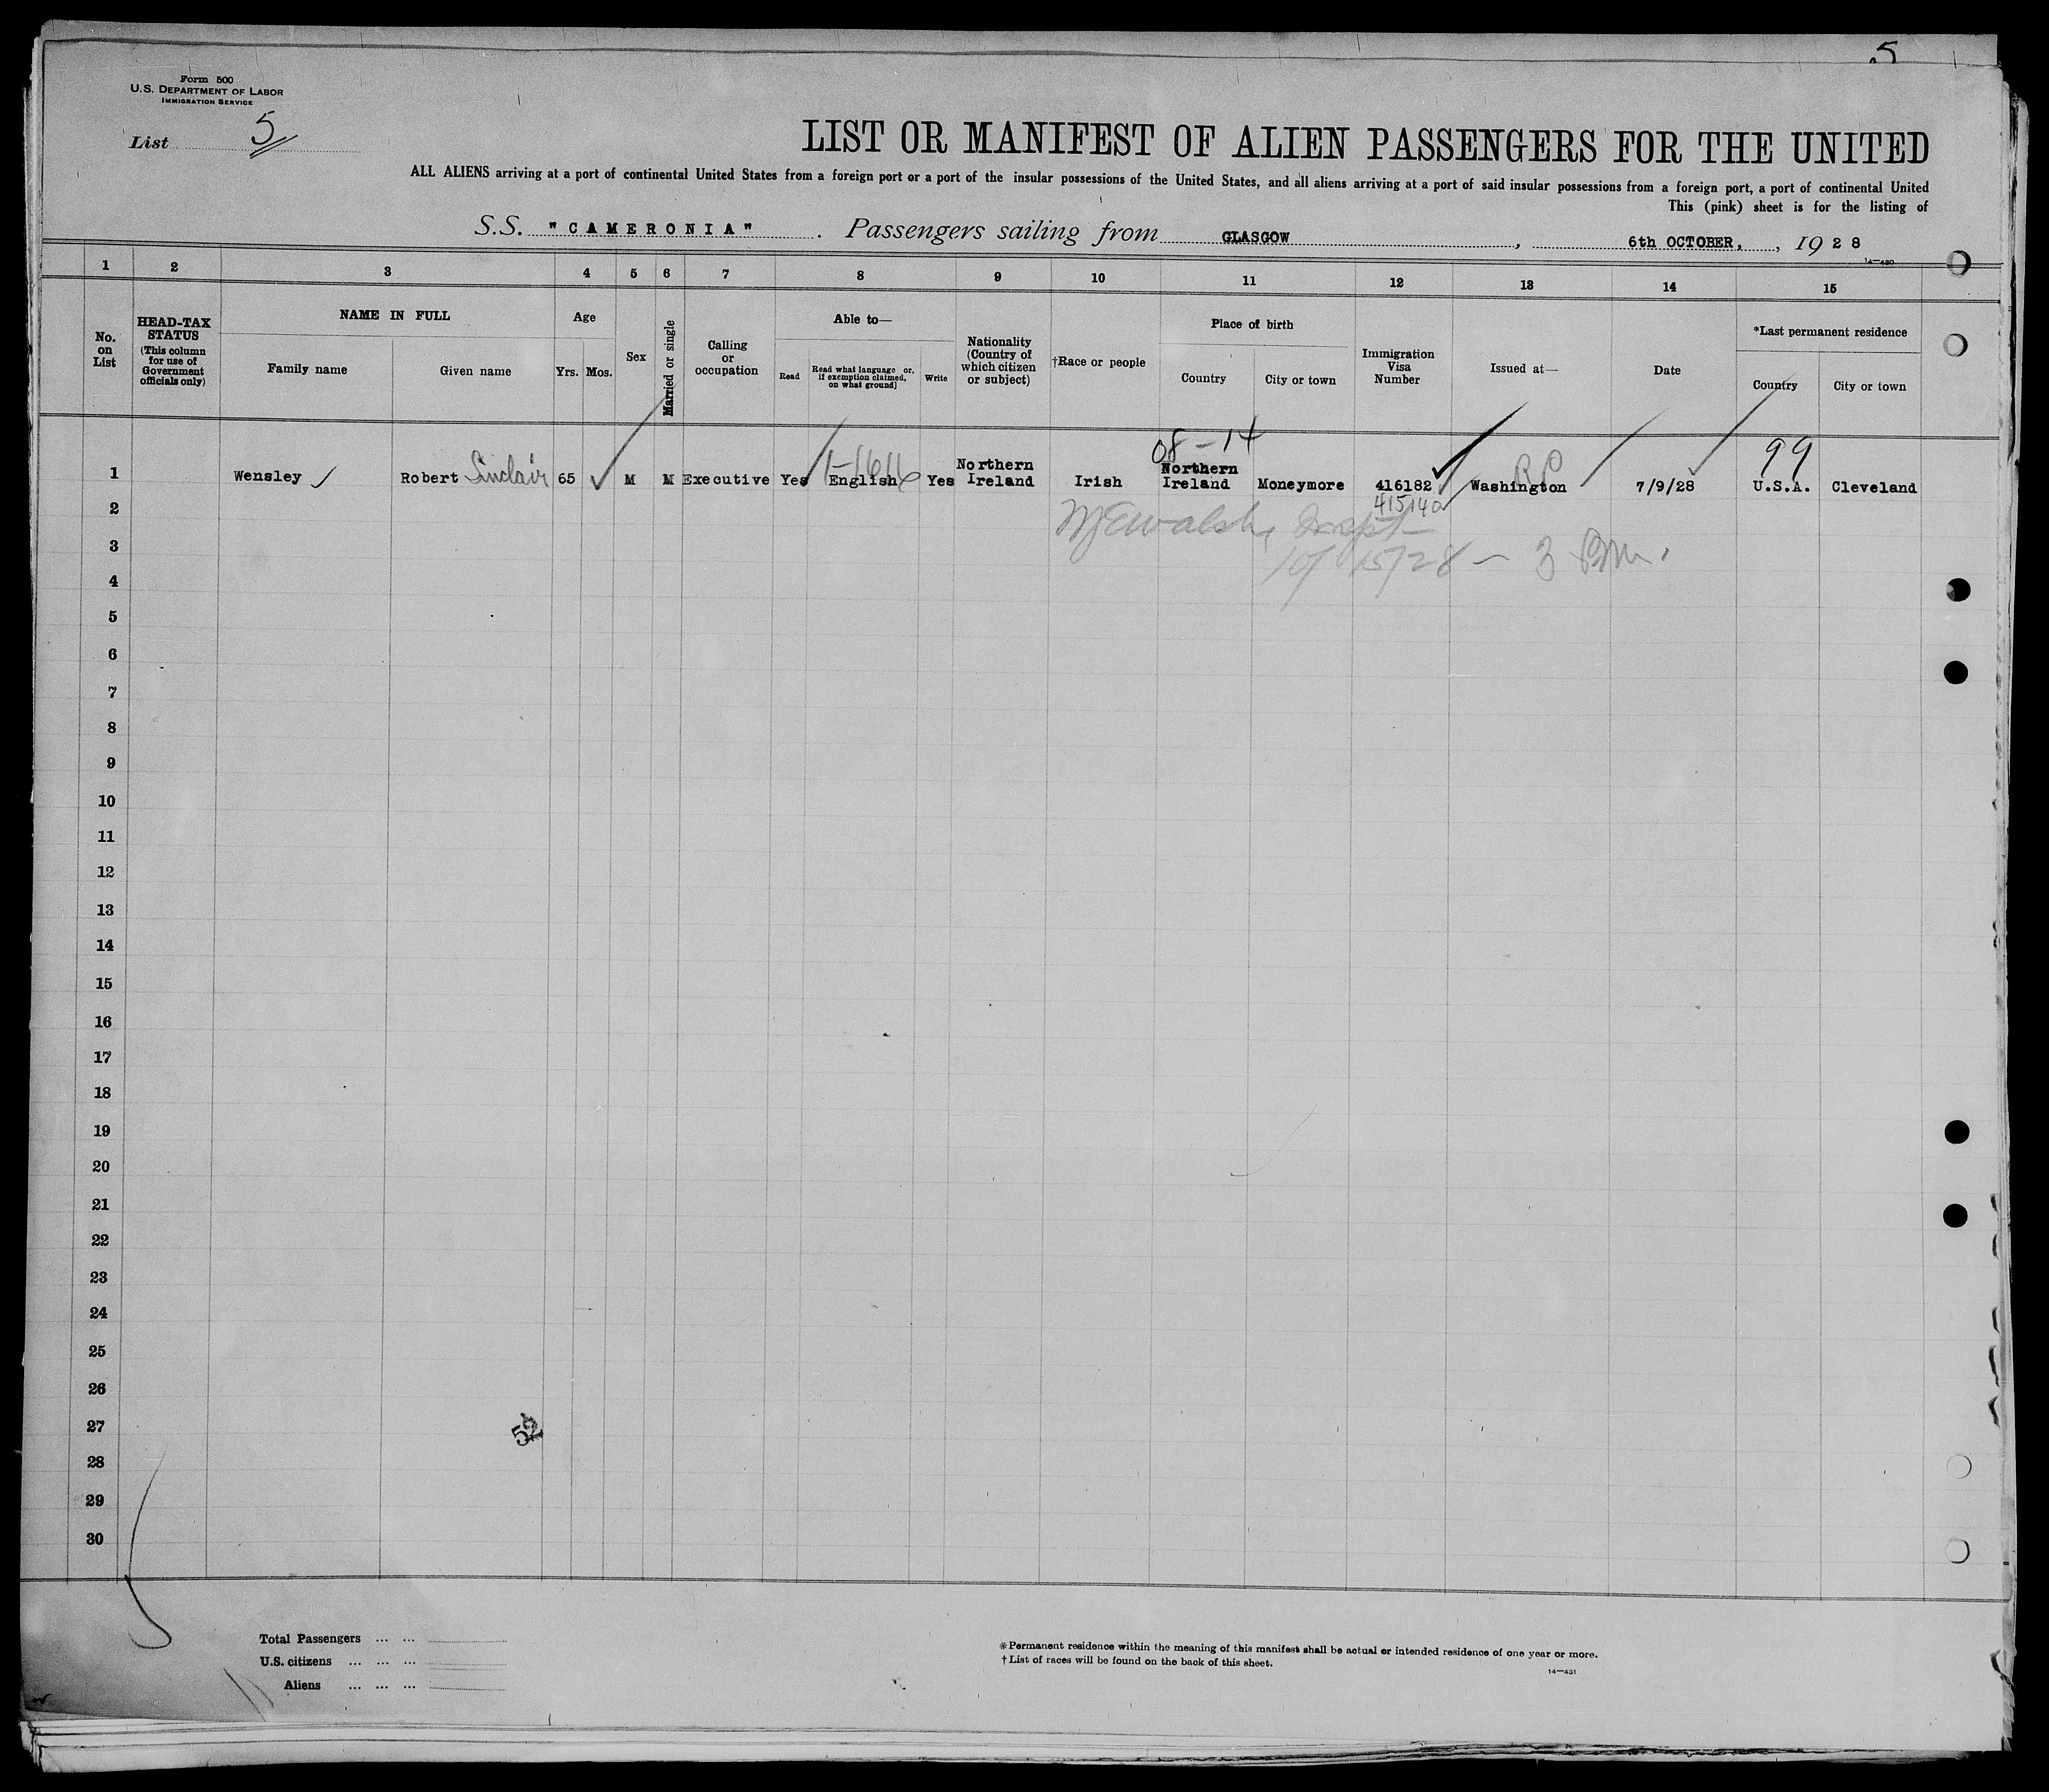 5
Form 500
U.S. DEPARTMENT OF LABOR
IMMIGRATION SERVICE
List 5
LIST OR MANIFEST OF ALIEN PASSENGERS FOR THE UNITED
ALL ALIENS arriving at a port of continental United States from a foreign port or a port of the insular possessions of the United States, and all aliens arriving at a port of said insular possessions from a foreign port, a port of continental United
This (pink) sheet is for the listing of
S.S. "CAMERONIA". Passengers sailing from GLASGOW, 6th OCTOBER, , 1928
14—430
1 2 3 4 5 6 7 8 9 10 11 12 13 14 15
No. on List
HEAD-TAX STATUS (This column for use of Government officials only)
NAME IN FULL
Family name
Given name
Age
Yrs. Mos.
Sex
Married or single
Calling or occupation
Able to—
Read
Read what language or, if exemption claimed, on what ground]
Write
Nationality (Country of which citizen or subject)
†Race or people
Place of birth
Country
City or town
Immigration Visa Number
Issued at—
Date
*Last permanent residence
Country
City or town
08-14
99
RP
1 Wensley Robert Sinclair 65 M M Executive Yes English Yes Northern Ireland Irish Northern Ireland Moneymore 416182 Washington 7/9/28 U.S.A. Cleveland
2
3
10/15/28 - 3 Pm.
4
5
6
7
8
9
10
11
12
13
14
15
16
17
18
19
20
21
22
23
24
25
26
27
52
28
29
30
Total Passengers ... ...
U.S. citizens ... ... ...
Aliens ... ... ...
*Permanent residence within the meaning of this manifest shall be actual or intended residence of one year or more.
†List of races will be found on the back of this sheet.
14—431